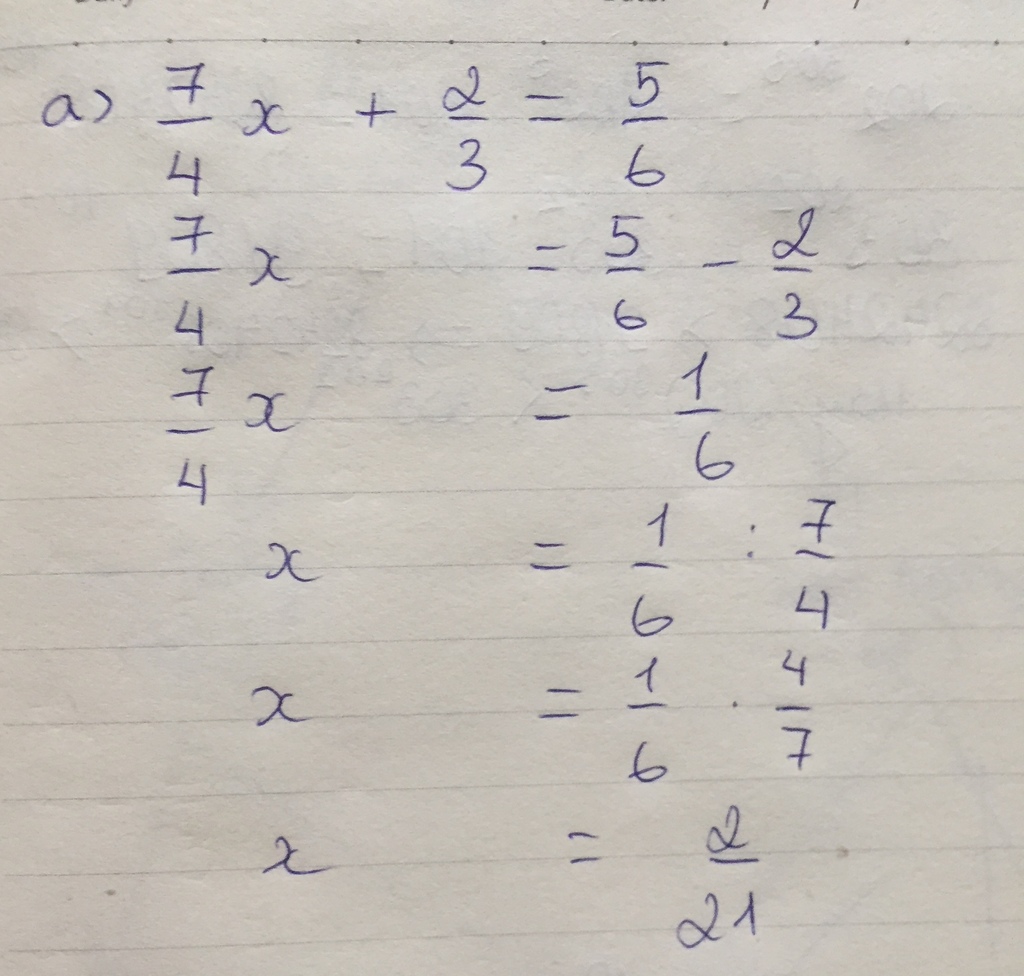 a) 7/4 x + 2/3 = 5/6
7/4 x = 5/6 - 2/3
7/4 x = 1/6
x = 1/6 : 7/4
x = 1/6 . 4/7
x = 2/21